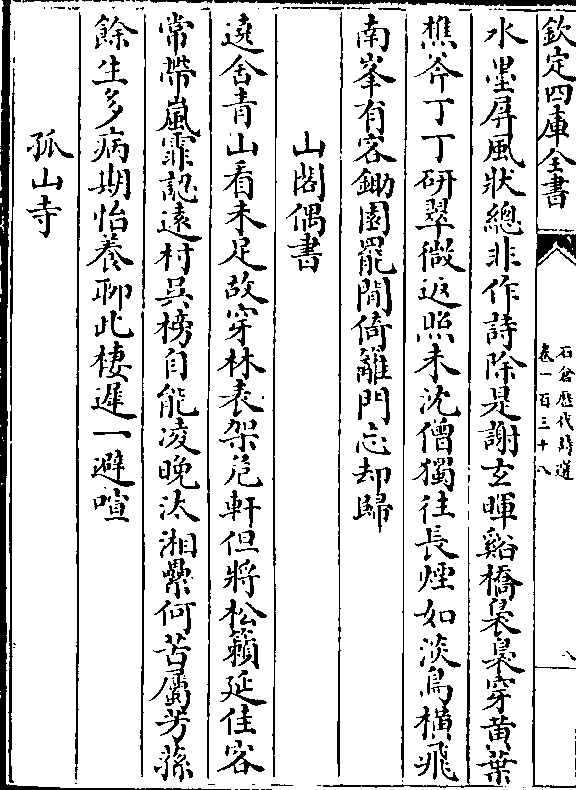 欽定四庫全書
石倉歷代詩選
卷一百三十八
八
水墨屏風狀總非作詩除是謝玄暉谿橋裊裊穿黄葉
樵斧丁丁斫翠微返照未沈僧獨往長煙如淡鳥横飛
南峯有客鋤園罷閒倚離門忘却歸
山閣偶書
遶舍青山看未足故穿林表架危軒但將松籟延佳客
常帶嵐霏認遠村吳榜自能凌晚汰湘纍何苦屬芳蓀
餘生多病期怡養聊此棲遲一避喧
孤山寺